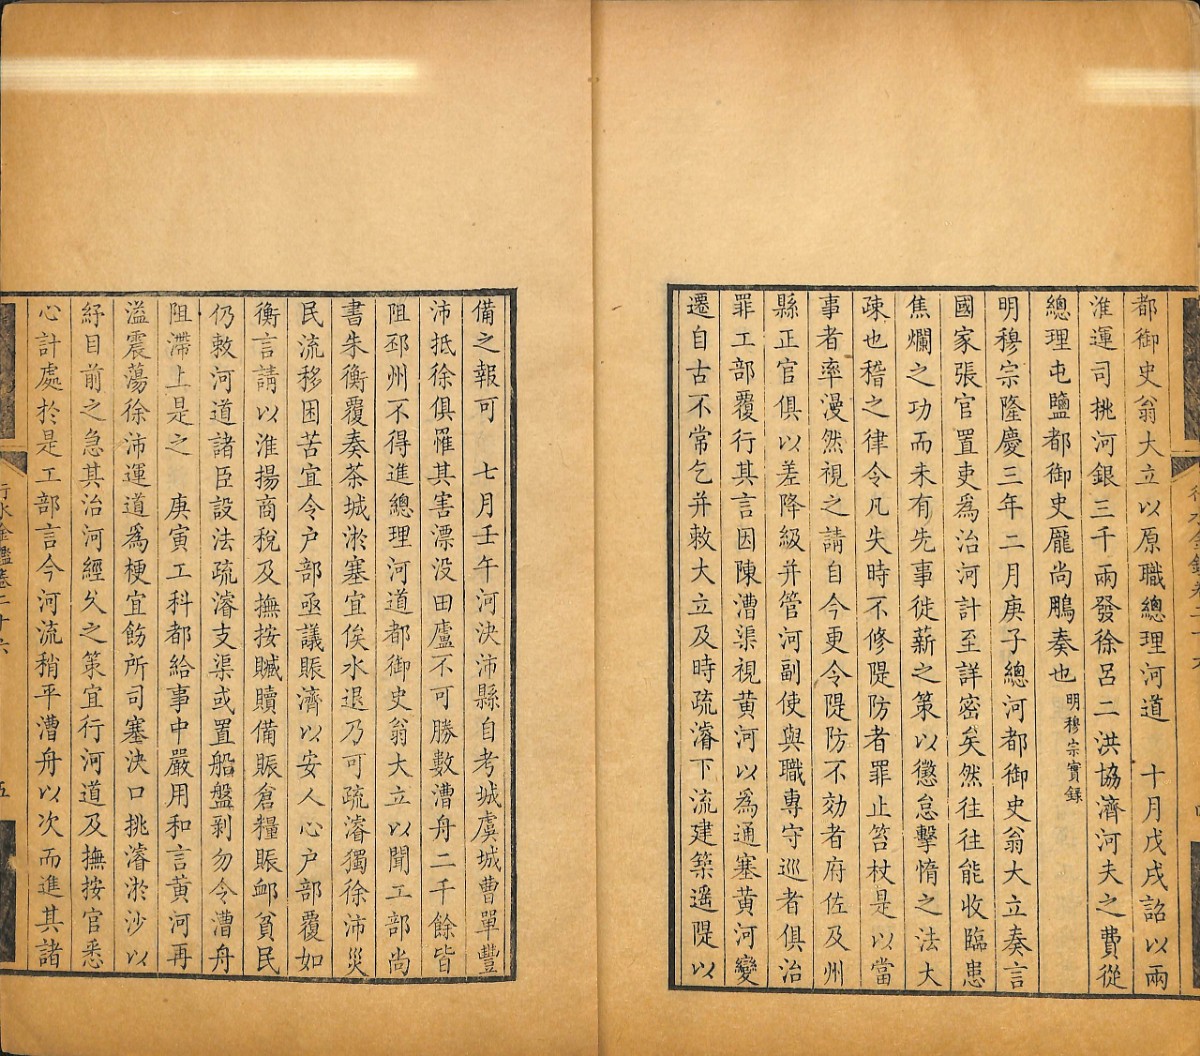 都御史翁大立以原職總理河道　十月戊戌詔以兩
淮運司挑河銀三千兩發徐呂二洪協濟河夫之費從
總理屯鹽都御史龎尚鵬奏也明穆宗實錄
明穆宗隆慶三年二月庚子總河都御史翁大立奏言
國家張官置吏爲治河計至詳密矣然往往能收臨患
焦爛之功而未有先事徙薪之策以懲怠擊惰之法大
疎也稽之律令凡失時不修隄防者罪止笞杖是以當
事者率漫然視之請自今更令隄防不効者府佐及州
縣正官俱以差降級并管河副使與職專守巡者俱治
罪工部覆行其言因陳漕渠視黄河以爲通塞黄河變
遷自古不常乞并敕大立及時疏濬下流建築遥隄以
備之報可　七月壬午河決沛縣自考城虞城曹單豐
沛抵徐俱罹其害漂没田廬不可勝數漕舟二千餘皆
阻邳州不得進總理河道都御史翁大立以聞工部尚
書朱衡覆奏茶城淤塞宜俟水退乃可疏濬獨徐沛災
民流移困苦宜令户部亟議賑濟以安人心户部覆如
衡言請以淮揚商税及撫按贓贖備賑倉糧賑䘏貧民
仍敕河道諸臣設法疏濬支渠或置船盤剥勿令漕舟
阻滯上是之　庚寅工科都給事中嚴用和言黄河再
溢震蕩徐沛運道爲梗宜飭所司塞決口挑濬淤沙以
紓目前之急其治河經久之策宜行河道及撫按官悉
心計處於是工部言今河流稍平漕舟以次而進其諸
行水金鑑卷二十六
五